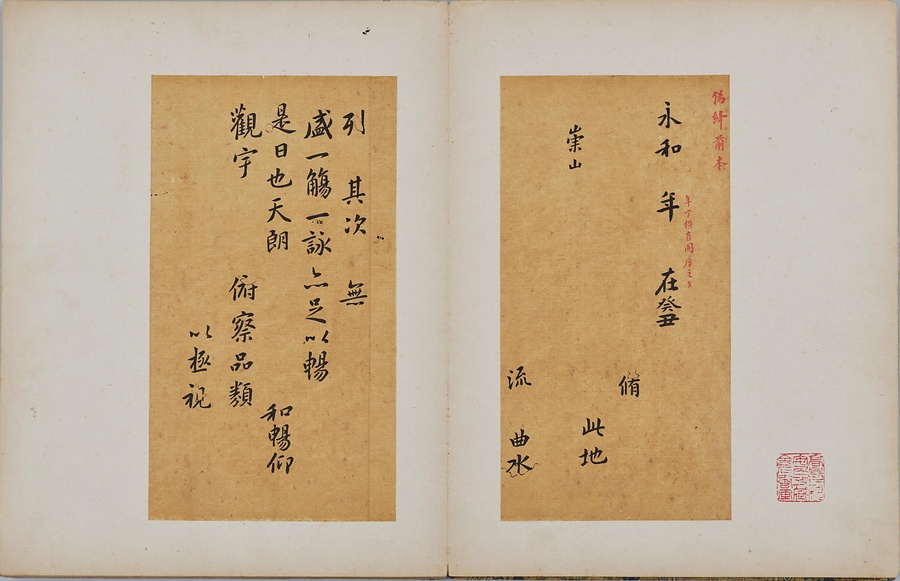 永和 年 在癸丑
脩
此地
崇山
流 曲水
列 其次 無
盛一觴一詠亦足以暢
是日也天朗 和暢仰
觀宇 俯察品類
以極視